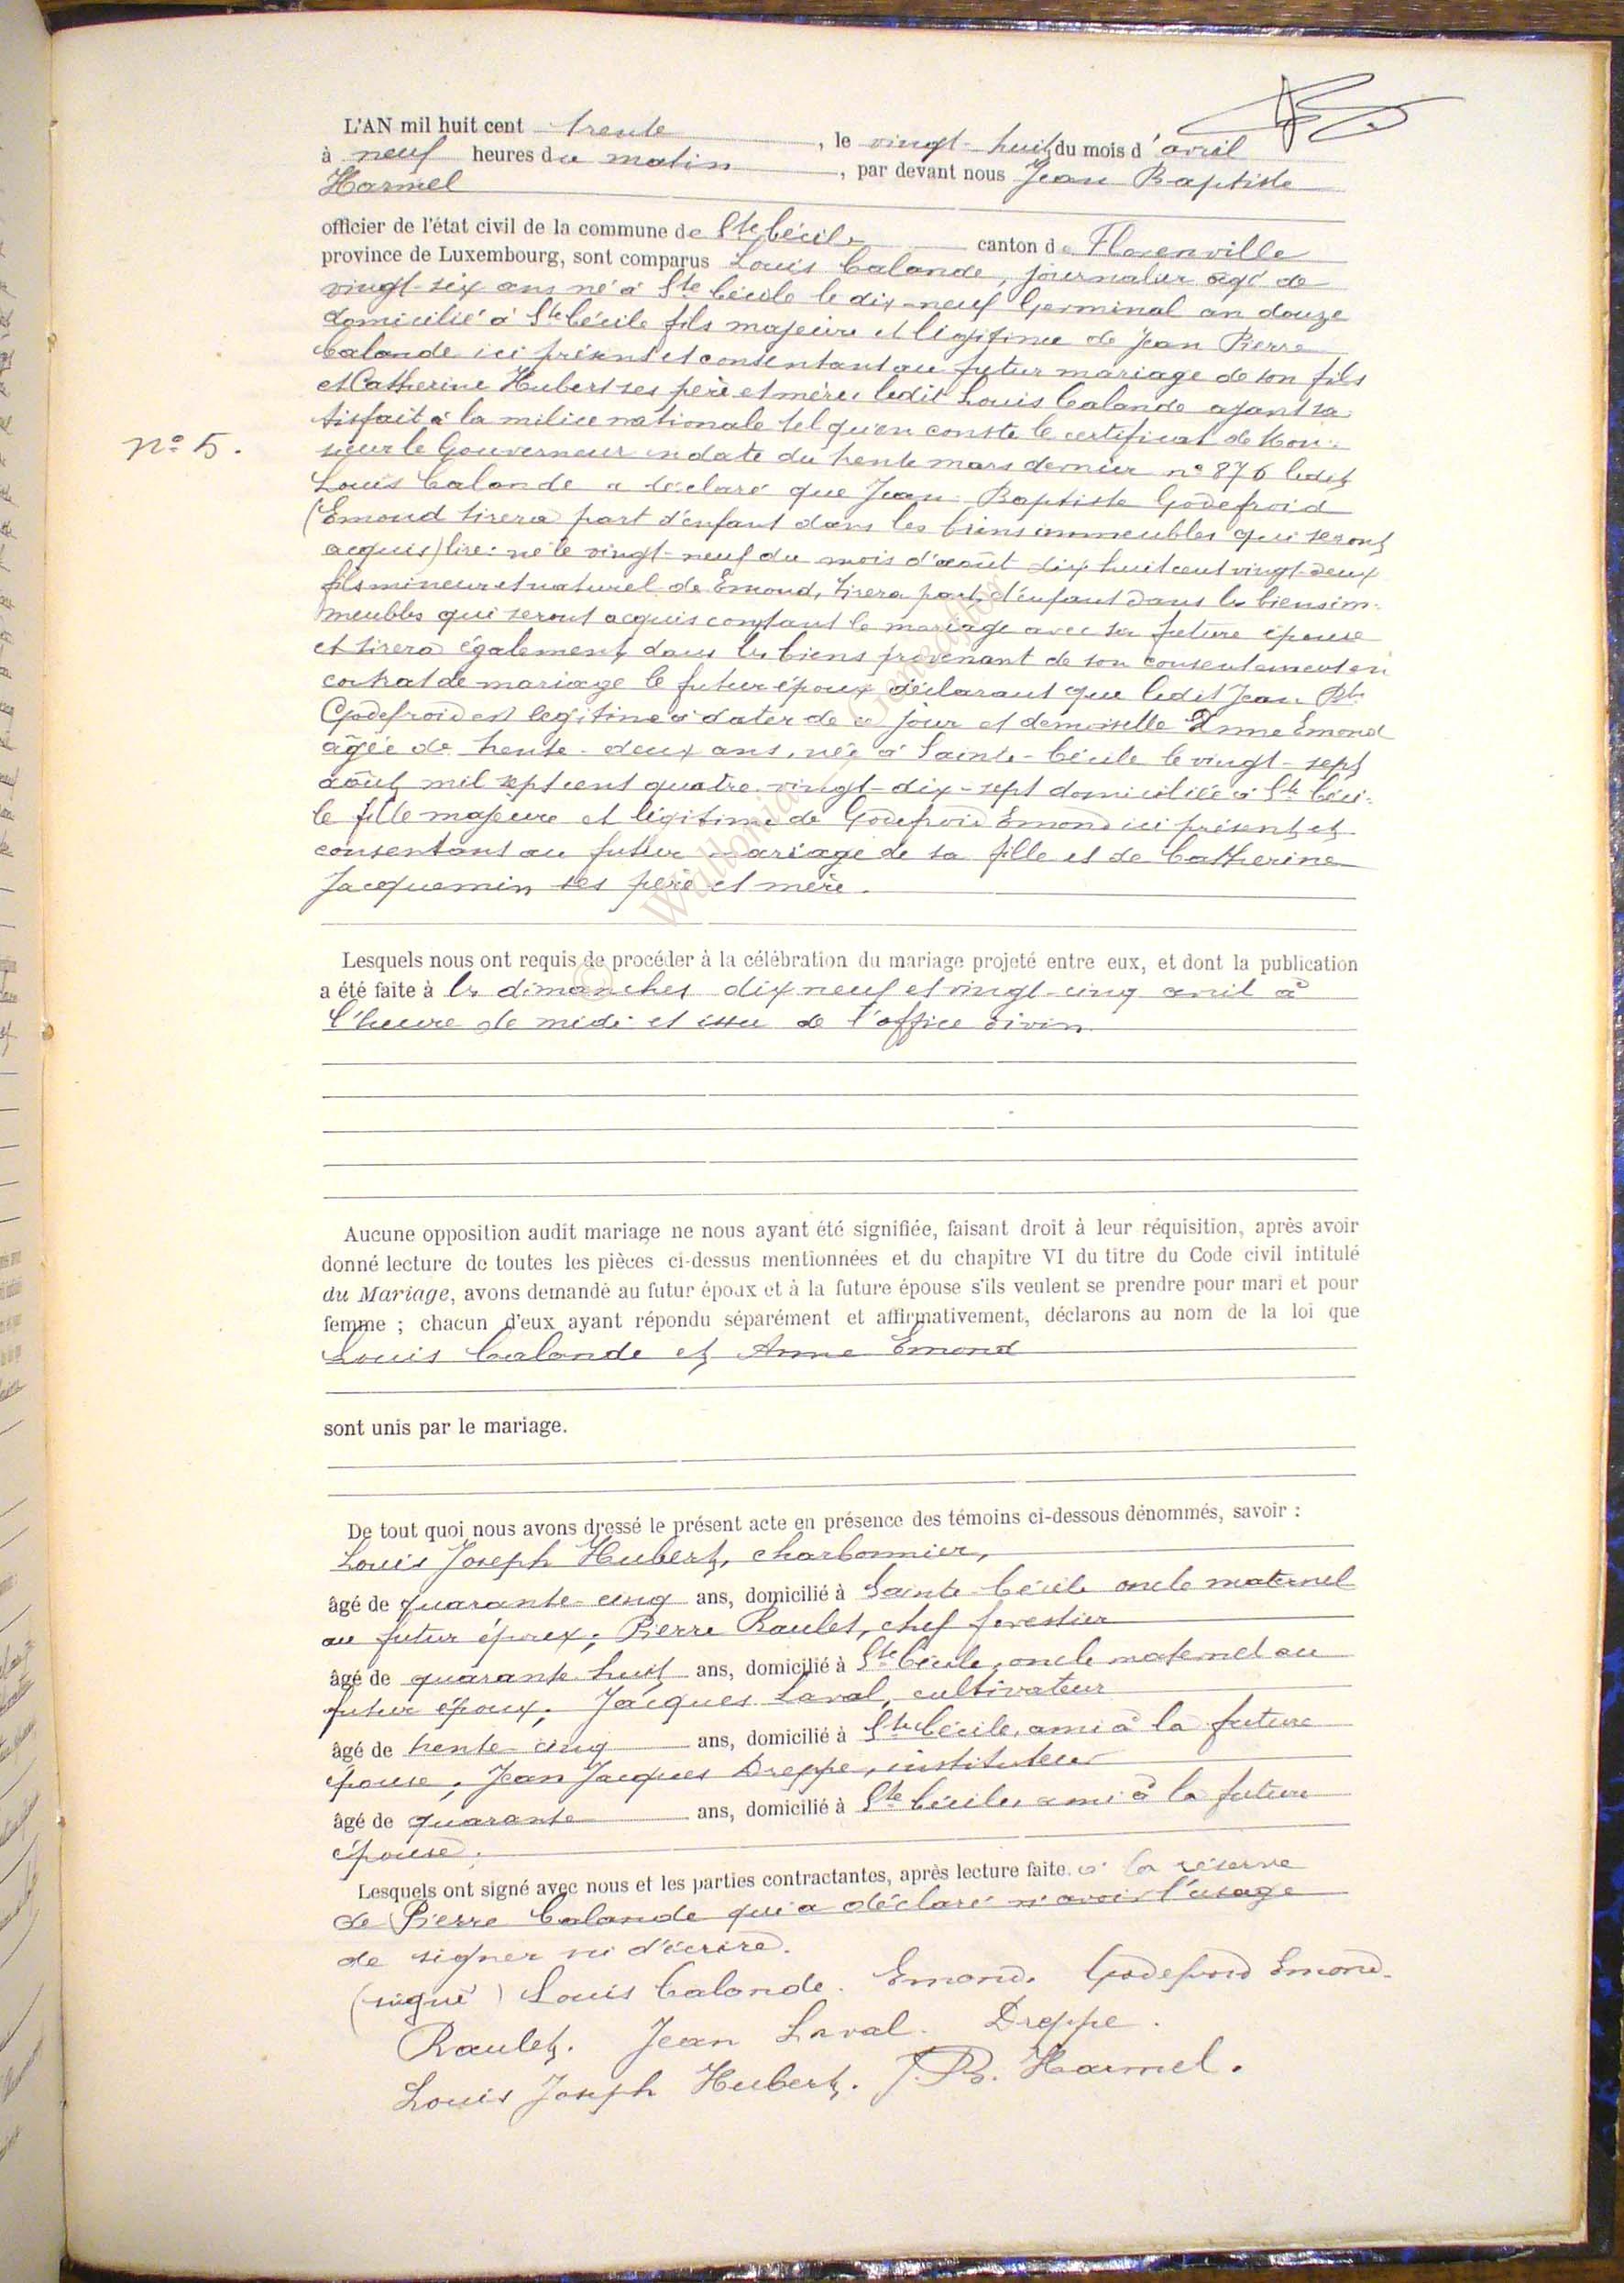 L'AN mil huit cent trente, le vingt-huit du mois d'avril
à neuf heures du matin, par devant nous Jean Baptiste
Harmel
officier de l'état civil de la commune de Ste Cécile canton de Florenville
province de Luxembourg, sont comparus Louis Calande, journalier agé de
vingt-six ans né à Ste Cécile le dix-neuf Germinal an douze
domicilié à Ste Cécile fils majeure et légitime de Jean Pierre
Calande ici présent et consentant au futur mariage de son fils
et Catherine Hubert ses père et mère, ledit Louis Calande ayant sa-
tisfait à la milice nationale tel qu'en conste le certificat de Mon-
N° 5.
sieur le Gouverneur en date du trente mars dernier n° 876 ledit
Louis Calande a déclaré que Jean Baptiste Godefroid
(Emond tirera part d'enfant dans les biens immeubles qui seront
acquis) lire: né le vingt-neuf du mois d'août dix huit cent vingt-deux
fils mineur et naturel de Emond, tirera part d'enfant dans les biens im-
meubles qui seront acquis constant le mariage avec sa future épouse
et tirera également dans les biens provenant de son consentement en
contrat de mariage le futur époux déclarant que ledit Jean Bte
Godefroid est legitime à dater de ce jour et demoiselle Anne Emond
âgée de trente-deux ans, née à Sainte-Cécile le vingt-sept
août mil sept cent quatre-vingt-dix-sept domiciliée à Ste Céci-
le fille majeure et légitime de Godefroid Emond ici présent et
consentant au futur mariage de sa fille et de Catherine
Jacquemin ses père et mère.
© Wallonia Genealogy
Lesquels nous ont requis de procéder à la célébration du mariage projeté entre eux, et dont la publication
a été faite à les dimanches dix neuf et vingt-cinq avril à
l'heure de midi et issu de l'office divin
Aucune opposition audit mariage ne nous ayant été signifiée, faisant droit à leur réquisition, après avoir
donné lecture de toutes les pièces ci-dessus mentionnées et du chapitre VI du titre du Code civil intitulé
du Mariage, avons demandé au futur époux et à la future épouse s'ils veulent se prendre pour mari et pour
femme ; chacun d'eux ayant répondu séparément et affirmativement, déclarons au nom de la loi que
Louis Calande et Anne Emond
sont unis par le mariage.
De tout quoi nous avons dressé le présent acte en présence des témoins ci-dessous dénommés, savoir :
Louis Joseph Hubert, charbonnier,
âgé de quarante-cinq ans, domicilié à Sainte Cécile oncle maternel
au futur époux; Pierre Raulet, chef forestier
âgé de quarante huit ans, domicilié à Ste Cécile, oncle maternel au
futur époux; Jacques Laval, cultivateur
âgé de trente-cinq ans, domicilié à Ste Cécile, ami à la future
épouse; Jean Jacques Dreppe, instituteur
âgé de quarante ans, domicilié à Ste Cécile, ami à la future
épouse.
Lesquels ont signé avec nous et les parties contractantes, après lecture faite. à la réserve
de Pierre Calande qui a déclaré n'avoir l'usage
de signer ni d'écrire.
(signé) Louis Calande. Emond. Godefroid Emond.
Raulet. Jean Laval. Dreppe.
Louis Joseph Hubert. J.B. Harmel.